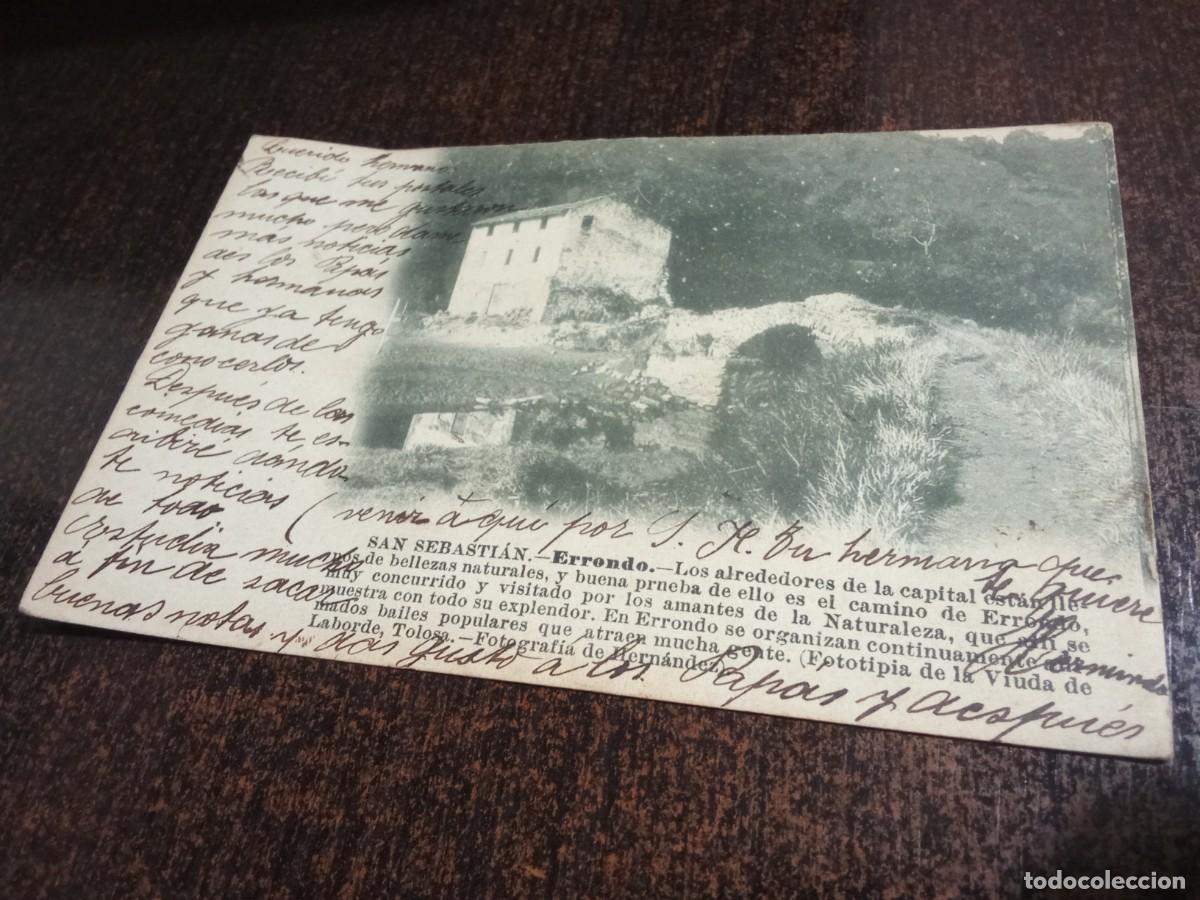 Querido hermano:
Recibí tus postales
las que me gustaron
mucho pero dame
mas noticias
de los Papás
y hermanos
que ya tengo
ganas de
conocerlos.
Después de las
comedias te es-
cribiré dando
te noticias
de todo
Estudia mucho
á fin de sacar
buenas notas y das gusto á los Papás y después
(venir á quí por S. H. Tu hermana que
te quiere
SAN SEBASTIÁN.—Errondo.—Los alrededores de la capital están lle-
nos de bellezas naturales, y buena prueba de ello es el camino de Errondo,
muy concurrido y visitado por los amantes de la Naturaleza, que allí se
muestra con todo su explendor. En Errondo se organizan continuamente
mados bailes populares que atraen mucha gente. (Fototipia de la Viuda de
Laborde, Tolosa.—Fotografía de Hernández.
todocoleccion